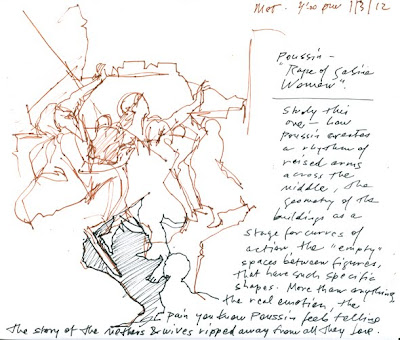 Met. 4:20 pm 1/3/12
Poussin -
"Rape of Sabine
Women".
Study this
one - how
Poussin creates
a rhythm of
raised arms
across the
middle, the
geometry of the
buildings as a
stage for curves of
action the "empty"
spaces between figures,
that have such specific
shapes. More than anything,
the real emotion, the
pain you know Poussin feels, telling
the story of the mothers & wives ripped away from all they love.